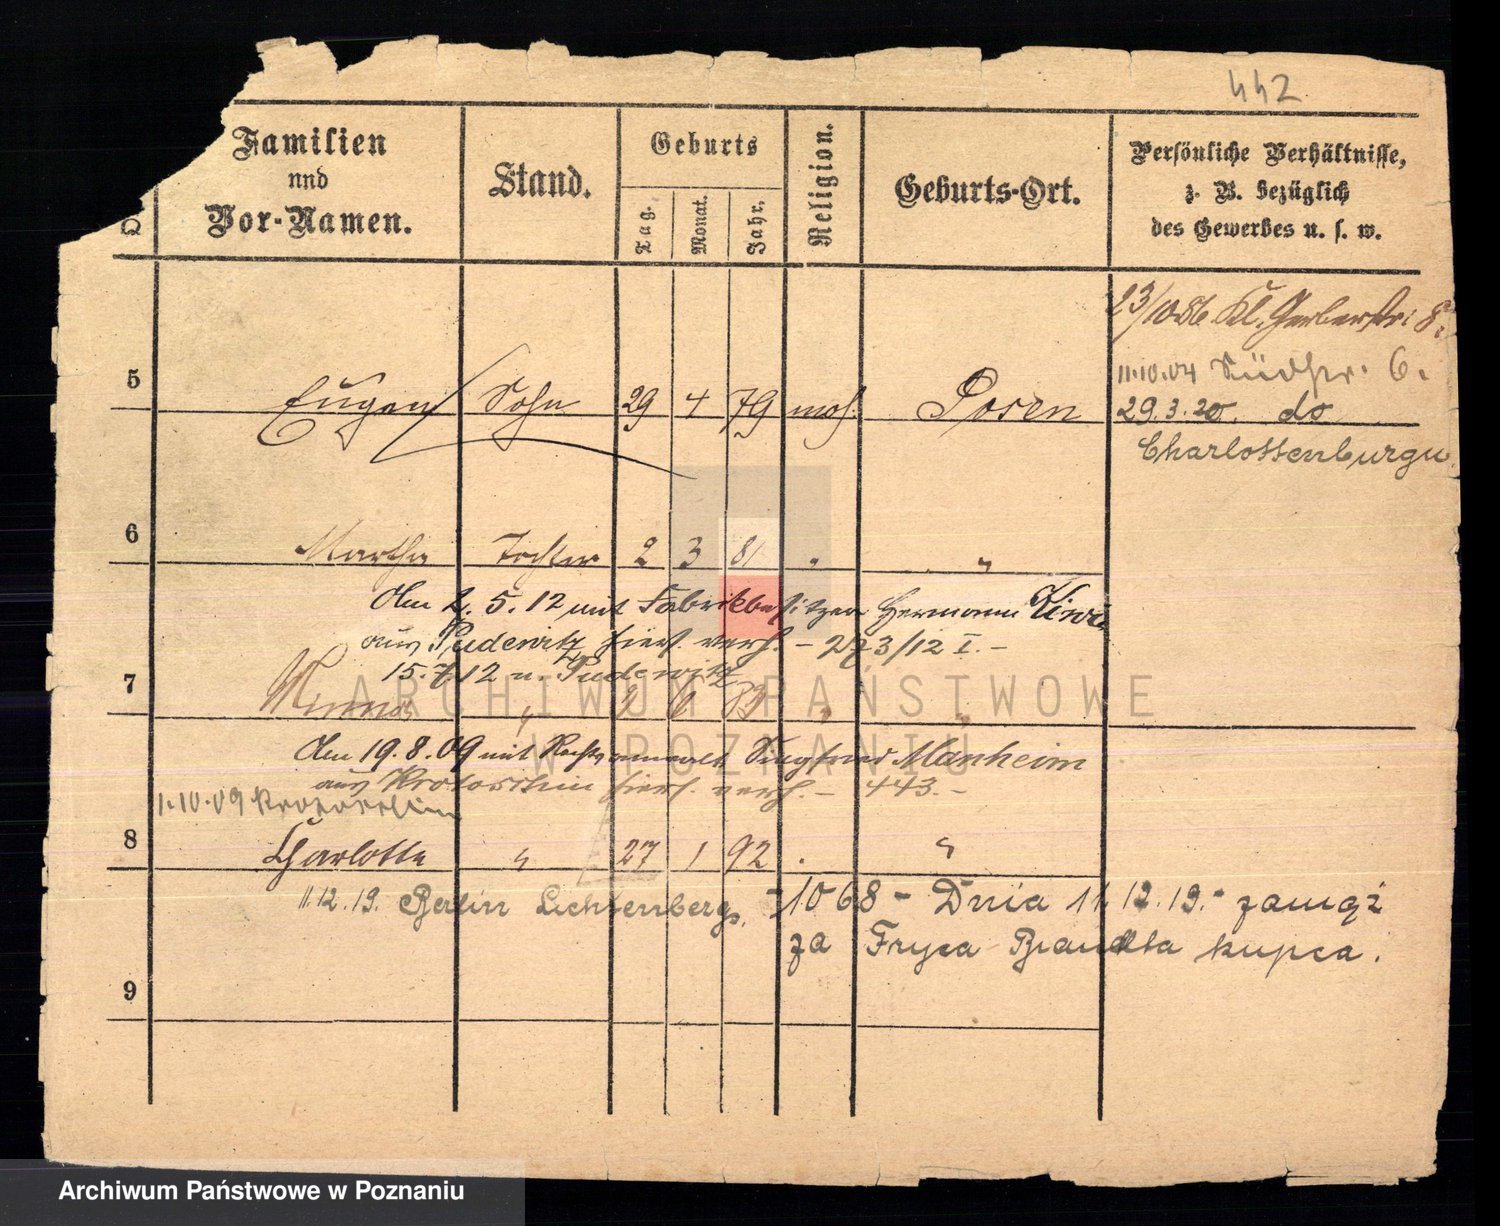 442
Familien
und
Vor-Namen.
Stand.
Geburts
Tag.
Monat.
Jahr.
Religion.
Geburts-Ort.
Persönliche Verhältnisse,
z. B. bezüglich
des Gewerbes u. s. w.
23/10.86 Kl. Gerberstr: 8.
11.10.04 6.
5 Eugen Sohn 29 4 79 mos. Posen
29.3.20. do
Charlottenburgu
6 Martha Tochter 2 3 81 " "
Am 2. 5. 12 mit Fabrikbesitzer Hermann
aus Pudewitz hies. verh. - 273/12 I. -
15.7.12 n. Pudewitz
7 Minna " 6 83 " "
Am 19.8.09 mit Rechtsanwalt Siegfried Manheim
aus Krotoschin hies. verh. - 443. -
1.10.09 Krotoschin
8 Charlotte " 27 1 92 . "
11.12.19. Berlin Lichtenberg. - 1068 - Dnia 11.12.19. - zamąż
za Fryca Brandta kupca.
9
ARCHIWUM PAŃSTWOWE
W POZNANIU
Archiwum Państwowe w Poznaniu